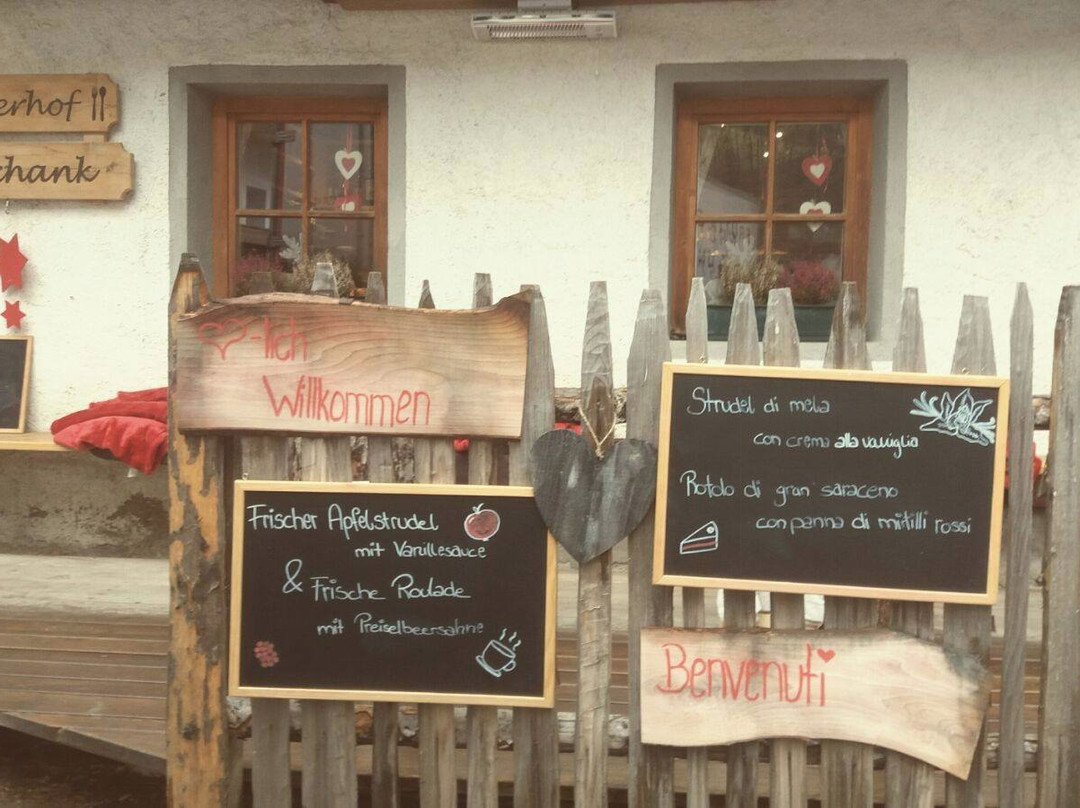 erhof
chank
-lich
Willkommen
Frischer Apfelstrudel
mit Vanillesauce
& Frische Roulade
mit Preiselbeersahne
Strudel di mela
con crema alla vaniglia
Rotolo di gran saraceno
con panna di mirtilli rossi
Benvenuti